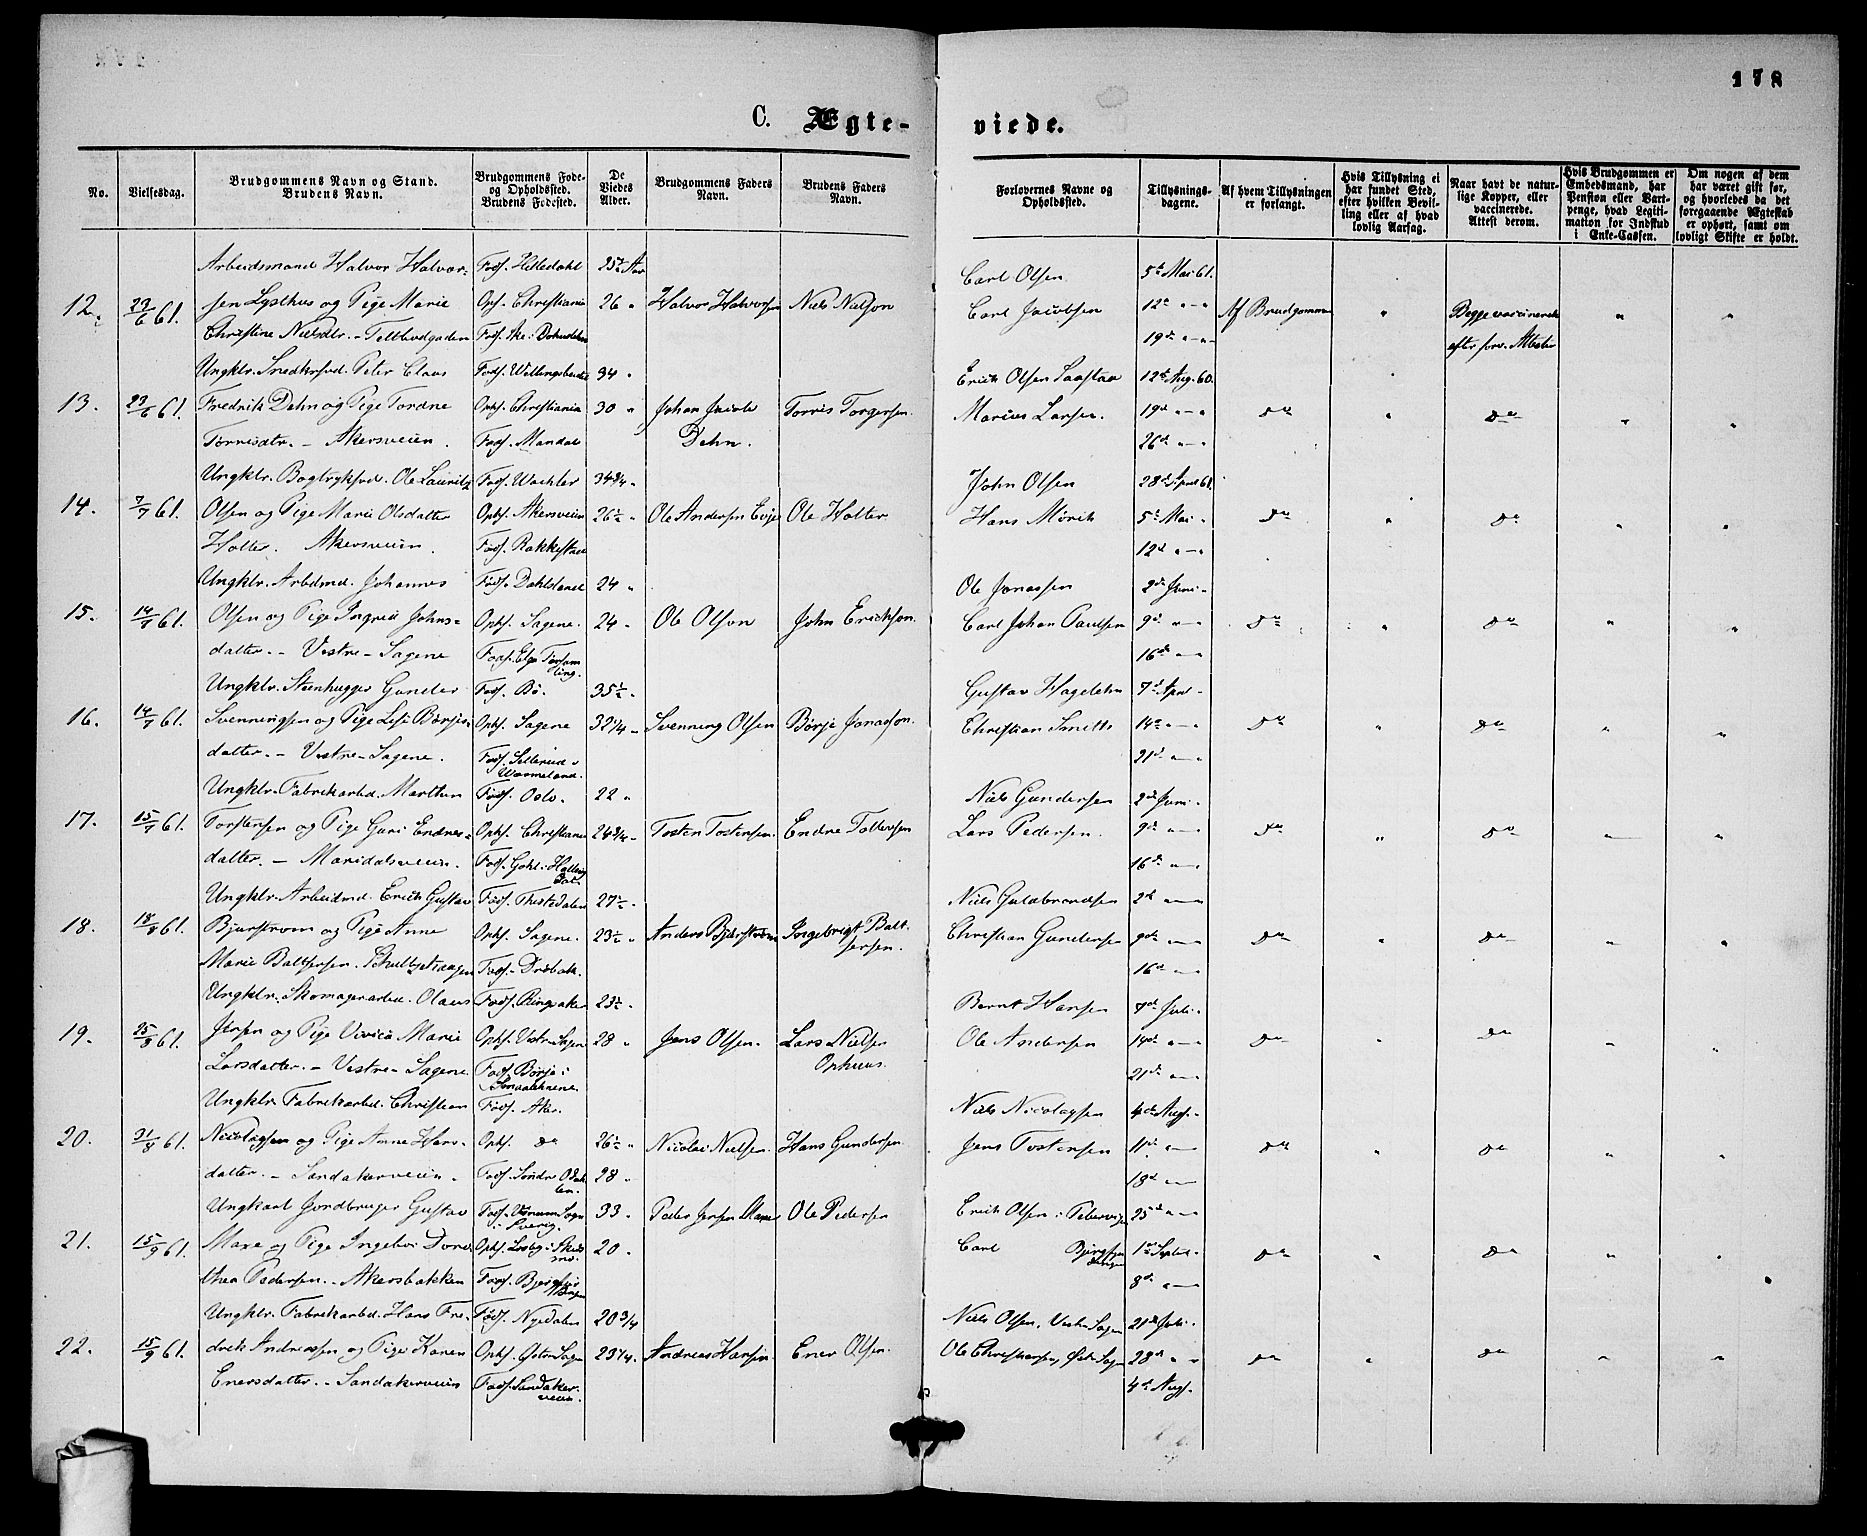 178
C. Ægte-
viede.
No.
Vielsesdag.
Brudgommens Navn og Stand.
Brudens Navn.
Brudgommens Føde-
og Opholdssted.
Brudens Fødested.
De
Viedes
Alder.
Brudgommens Faders
Navn.
Brudens Faders
Navn.
Forlovernes Navne og
Opholdssted.
Tillysnings-
dagene.
Af hvem Tillysningen
er forlangt.
Hvis Tillysning ei
har fundet Sted,
efter hvilken Bevil-
ling eller af hvad
lovlig Aarsag.
Naar havt de natur-
lige Kopper, eller
vaccinerede.
Attest derom.
Hvis Brudgommen er
Embedsmand, har
Pension eller Vart-
penge, hvad Legiti-
mation for Indskud
i Enke-Cassen.
Om nogen af dem
har været gift før,
og hvorledes da det
foregaaende Ægteskab
er ophørt, samt om
lovligt Skifte er holdt.
12. 23/6 61.
Arbeidsmand Halvor Halvor-
sen Lysthus og Pige Marie
Christine Nielsdtr. - Telthusgaden
Fødf. Hitterdahl
Oph. Christiania
25 1/2 Aar
26 "
Halvor Halvorsen
Niels Nielson
Carl Olsen
Carl Jacobsen
5te Mai 61.
12te " - "
19de " - "
Af Brudgommen
"
Begge vaccinerede
efter forev. Attester
"
"
13. 23/6 61.
Ungklr. Snedkersvd. Peter Claus
Fredrik Dehn og Pige Tordne
Tørrisdtr. - Akersveien.
Opf. Christiania
Fødf. Mandal
34 "
30 "
Johan Jacob
Dehn.
Torris Torgersen.
Erich Olsen Saastad
Marius Larsen.
12te Aug. 60.
19de " - "
26de " - "
Do
"
Do
"
"
14. 7/7 61.
Ungklr. Bogtrykfvd. Ole Lauritz
Olsen og Pige Marie Olsdatter
Holter. Akersveien.
Opf. Akersveien
Fødf. Rakkestad
34 3/4 "
26 1/2 "
Ole Andersen Evje
Ole Holter
John Olsen
Hans Mørch
28de April 61.
5te Mai "
12te " - "
Do
"
Do
"
"
15. 14/7 61.
Ungklr. Arbdmd. Johannes
Olsen og Pige Ingrid Johns-
datter. - Vestre-Sagene
Fødf. Dahlsland
Opf. Sagene.
24 "
24 "
Ole Olson
John Erickson.
Ole Jonassen
Carl Johan Paulsen
2den Juni "
9de " - "
16de " - "
Do
"
Do
"
"
16. 14/7 61.
Ungklr. Steenhugger Gunder
Svenningsen og Pige Lisa Børjes-
datter. - Vestre-Sagene.
Fødf. Bø.
Opf. Sagene
Fødf. Sillerud i
Wærmeland.
35 1/2 "
32 1/4 "
Svenning Olsen
Børje Jonasson.
Gustav Hagelsten
Christian Smith
7de April "
14de " - "
21de " - "
Do
"
Do
"
"
17. 15/7 61.
Ungklr. Fabrikarbd. Marthin
Torstensen og Pige Guri Endres-
datter. - Maridalsveien.
Fødf. Oslo.
Opf. Christiania
Fødf. Gohl i Halling
dal.
22 "
24 3/4 "
Tosten Tostensen.
Endre Tollersen
Niels Gundersen
Lars Pedersen.
2den Juni "
9de " - "
16de " - "
Do
"
Do
"
"
18. 18/8 61.
Ungklr. Arbeidmd. Erich Gustav
Bjurstrøm og Pige Anne
Marie Baltsersen.
Fødf. Thistedalen
Opf. Sagene.
Fødf. Drøbak.
27 1/2 "
23 1/2 "
Anders Bjurstrøm
Ingebrigt Balt-
sersen.
Niels Guldbrandsen
Christian Gundersen
2de " - "
9de " - "
16de " - "
Do
"
Do
"
"
19. 25/8 61.
Ungklr. Skomagerarbd. Olaus
Jensen og Pige Vivica Marie
Larsdatter. - Vestre-Sagene
Fødf. Ringsaker
Opf. Vestre Sagen
Fødf. Borge i
Smaalenene
23 1/2 "
28 "
Jens Olsen.
Lars Nielsen
Ophuus.
Bernt Hansen
Ole Andersen
7de Juli "
14de " - "
21de " - "
Do
"
Do
"
"
20. 31/8 61.
Ungklr. Fabrikarbd. Christian
Nicolaysen og Pige Anne Hans-
datter. - Sandakerveien.
Fødf. Aker.
Opf. do
Fødf. Søndre Odal-
len.
26 1/2 "
28 "
Nicolai Nielsen.
Hans Gundersen
Niels Nicolaysen
Jens Tostensen
4de Aug. "
11te " - "
18de " - "
Do
"
Do
"
"
21. 15/9 61.
Ungkarl Jordbruger Gustav
Maxe og Pige Ingeborg Doro-
thea Pedersen. - Akersbakken
i Sverig.
33 "
20 "
Peder Jensen Maxe
Ole Pedersen
Erich Olsen i Pebervigen
Carl
25de " - "
1ste Septbr. "
8de " - "
Do
"
Do
"
"
22. 15/9 61.
Ungklr. Fabrikarbd. Hans Fre-
drik Andreassen og Pige Karen
Enersdatter. - Sandakerveien
Fødf. Nydalen
Opf. Østre Sagen
Fødf. Sandaker-
veien.
20 3/4
23 1/4 "
Andreas Hansen.
Ener Olsen.
Niels Olsen, Vestre Sagen
Ole Christiansen, Østre Sagen
21de Juli "
28de " "
4de Aug. "
Do
"
Do
"
"